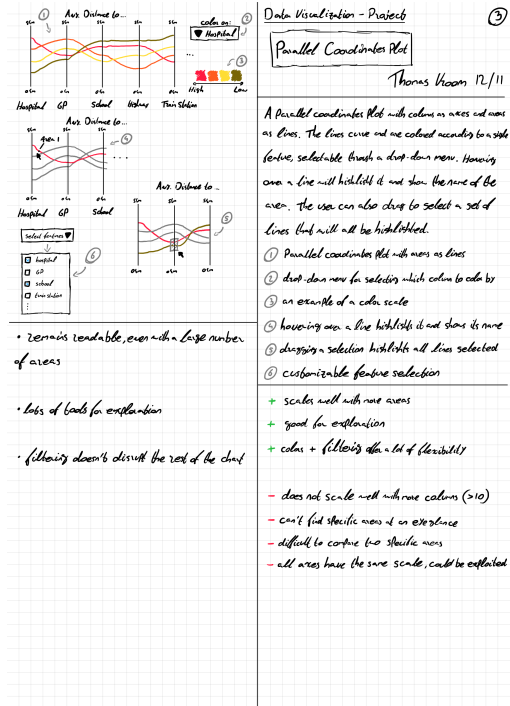 Avg. Distance to...
① ②
5km 5km 5km 5km 5km
color on:
▼ Hospital
③
High Low
0km 0km 0km 0km 0km
Hospital GP School Train station
Avg. Distance to...
5km 5km 5km
④
area 1
0km 0km 0km
Hospital GP School
Avg. Distance to ...
5km 5km 5km
⑤
0km 0km 0km
select features ▼
⑥
hospital
GP
school
train station
• remains readable, even with a large number
of areas
• lots of tools for exploration
• filtering doesn't disrupt the rest of the chart
Data Visualization - Project
③
Parallel Coordinates Plot
Thomas Vroom 12/11
A Parallel coordinates Plot with colums as axes and areas
as lines. The lines curve and are colored according to a single
feature, selectable through a drop-down menu. Hovering
over a line will highlight it and show the name of the
area. The user can also drag to select a set of
lines that will all be highlighted.
① Parallel coordinates plot with areas as lines
② drop-down menu for selecting which column to color by
③ an example of a color scale
④ hovering over a line highlights it and shows its name
⑤ dragging a selection highlights all lines selected
⑥ customizable feature selection
+ scales well with more areas
+ good for exploration
+ colors + filtering offer a lot of flexibility
- does not scale well with more columns (>10)
- can't find specific areas at an eyeglance
- difficult to compare two specific areas
- all axes have the same scale, could be exploited